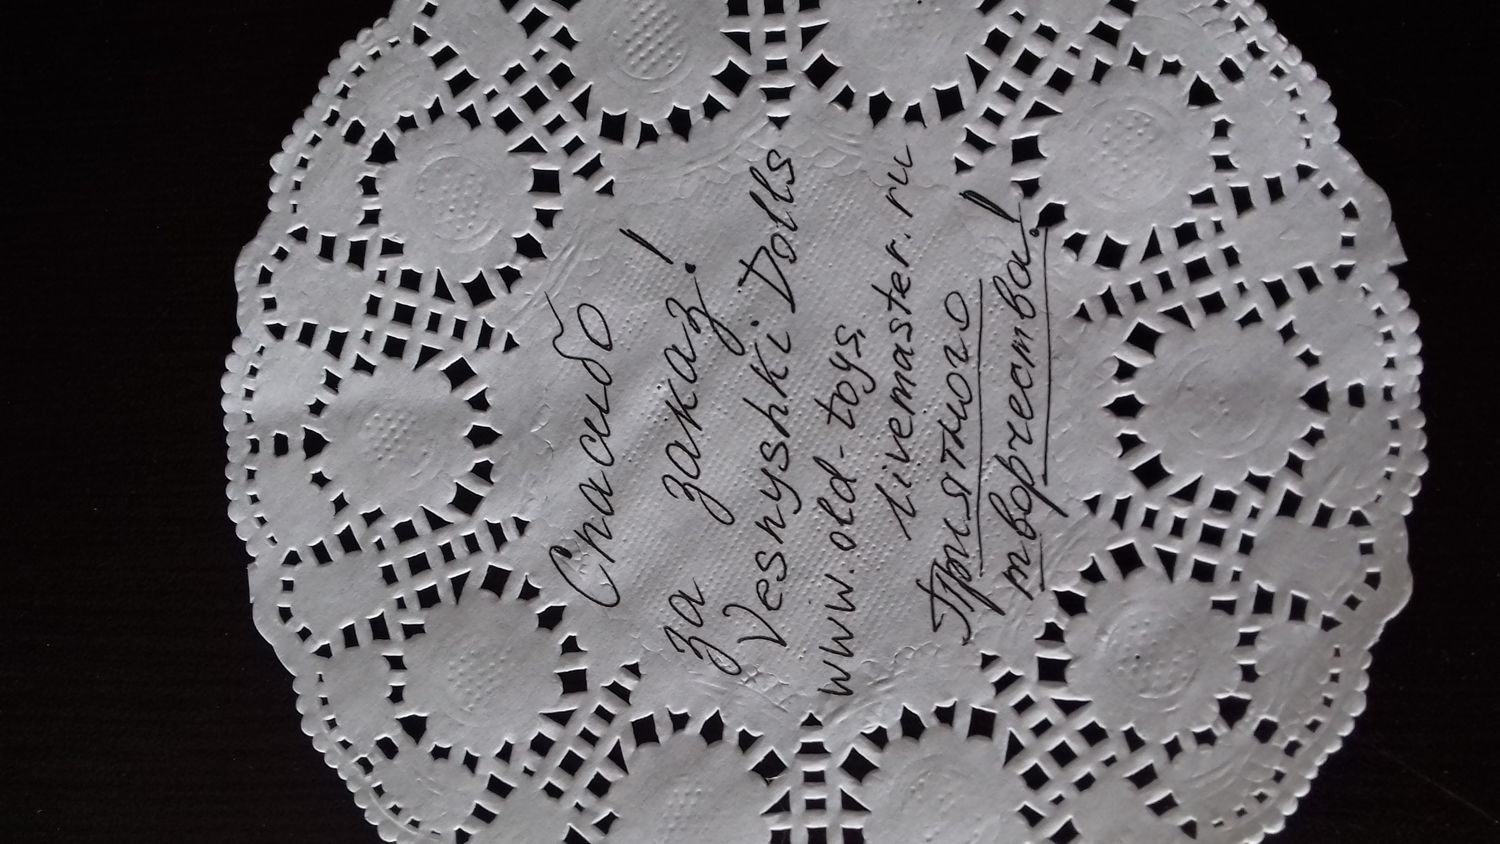 Спасибо
за заказ!
Vesnyshki Dolls
www.old-toys.
livemaster.ru
Приятного
творчества!